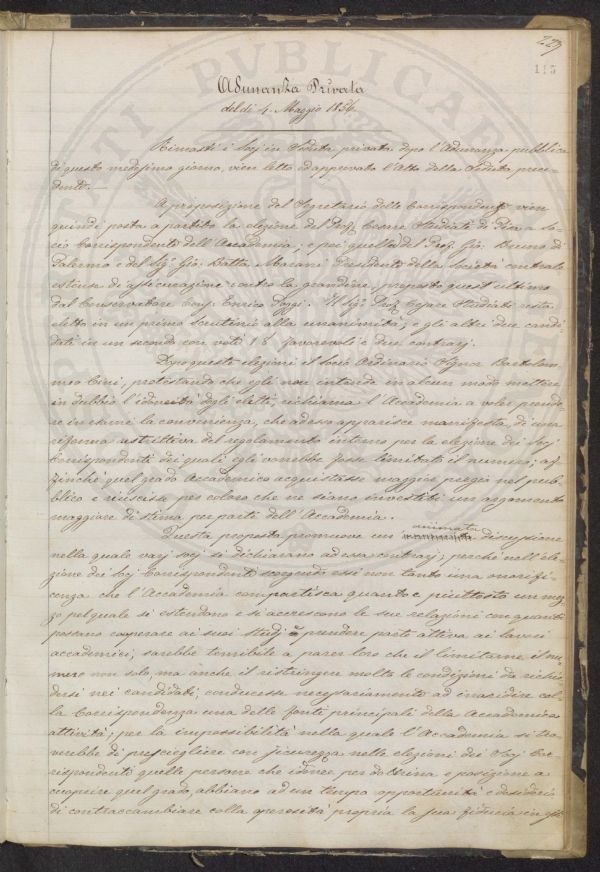 229
115
Adunanza Privata
del dì 4. Maggio 1856.
Rimasti i Socj in Seduta privata dopo l'Adunanza pubblica
di questo medesimo giorno, vien letto ed approvato l'Atto della Seduta prece-
dente.—
A proposizione del Segretario delle Corrispondenze vien
quindi posta a partito la elezione del Prof. Cesare Studiati di Pisa a So-
cio Corrispondente dell'Accademia; e poi quella del Prof. Gio: Bruno di
Palermo e del Sig. Gio: Batta Presidente della Società centrale
di assicurazione contro la grandine, proposto quest'ultimo
dal Conservatore Enrico Poggi. Il Sig. Prof. Cesare Studiati resta
eletto in un primo scrutinio alla unanimità; e gli altri due candi-
dati in un secondo con voti 18 favorevoli e due contrarj.
Dopo queste elezioni il Socio Ordinario Signor Bartolom-
meo Cini, protestando che egli non intende in alcun modo mettere
in dubbio l'idoneità degli eletti, richiama l'Accademia a voler prende-
re in esame la convenienza, che adesso apparisce manifesta, di una
riforma restrittiva del regolamento interno per la elezione di Socj
Corrispondenti dei quali egli vorrebbe fosse limitato il numero; af-
finchè quel grado Accademico acquistasse maggior pregio nel pub-
blico e riuscisse per coloro che ne siano investiti un argomento
maggiore di stima per parte dell'Accademia.
animata
Questa proposta promuove un discussione
nella quale varj socj si dichiarano ad essa contrarj; perchè nell'ele-
zione dei Socj Corrispondenti scorgendo essi non tanto una onorifi-
cenza che l'Accademia compartisca quanto e piuttosto un mez-
zo pel quale si estendono e si accrescono le sue relazioni con quanti
possano cooperare ai suoi studj e prendere parte attiva ai lavori
accademici; sarebbe temibile a parer loro che il limitarne il nu-
mero non solo, ma anche il ristringere molto le condizioni da richie-
dersi nei candidati, conducesse necessariamente ad inaridire col-
la Corrispondenza una delle fonti principali della Accademica
attività; per la impossibilità nella quale l'Accademia si tro-
verebbe di prescegliere con sicurezza nelle elezioni dei Socj Cor-
rispondenti quelle persone che idonee per dottrina e posizione a
cuoprire quel grado, abbiano ad un tempo opportunità e desiderio
di contraccambiare colla operosità propria la sua fiducia in